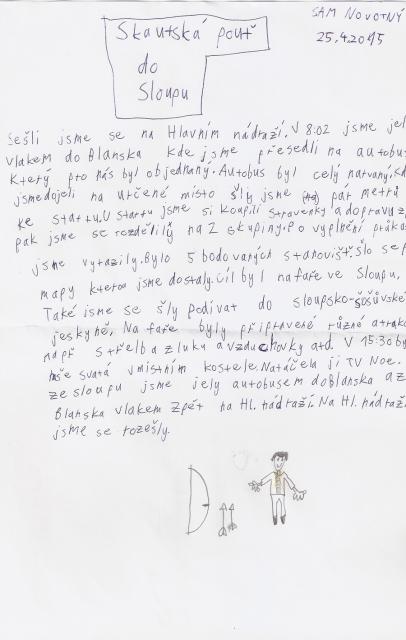 SAM NOVOTNÝ
25.4.2015
Skautská pouť
do
Sloupu
Sešli jsme se na Hlavním nádraží. V 8:02 jsme jel
vlakem do Blanska kde jsme přesedli na autobus
který pro nás byl objednaný. Autobus byl celý narvaný. Kd
jsme dojeli na určené místo šly jsme pár metrů
ke startu. U startu jsme si koupili stravenky a dopravu z
pak jsme se rozdělily na 2 skupiny. Po vyplnění průkaz
jsme vyrazily. Bylo 5 bodovaných stanovišť. šlo se p
mapy kterou jsme dostaly. Cíl byl na faře ve Sloupu.
Také jsme se šly podívat do sloupsko-šošůvské
jeskyně. Na faře byly připravené různé atrak
např střelba z luku a vzduchovky atd. V 15:30 by
mše svatá v místním kostele. Natáčela ji TV Noe.
ze sloupu jsme jely autobusem do Blanska a z
Blanska vlakem zpět na Hl. nádraží. Na Hl. nádraž
jsme se rozešly.